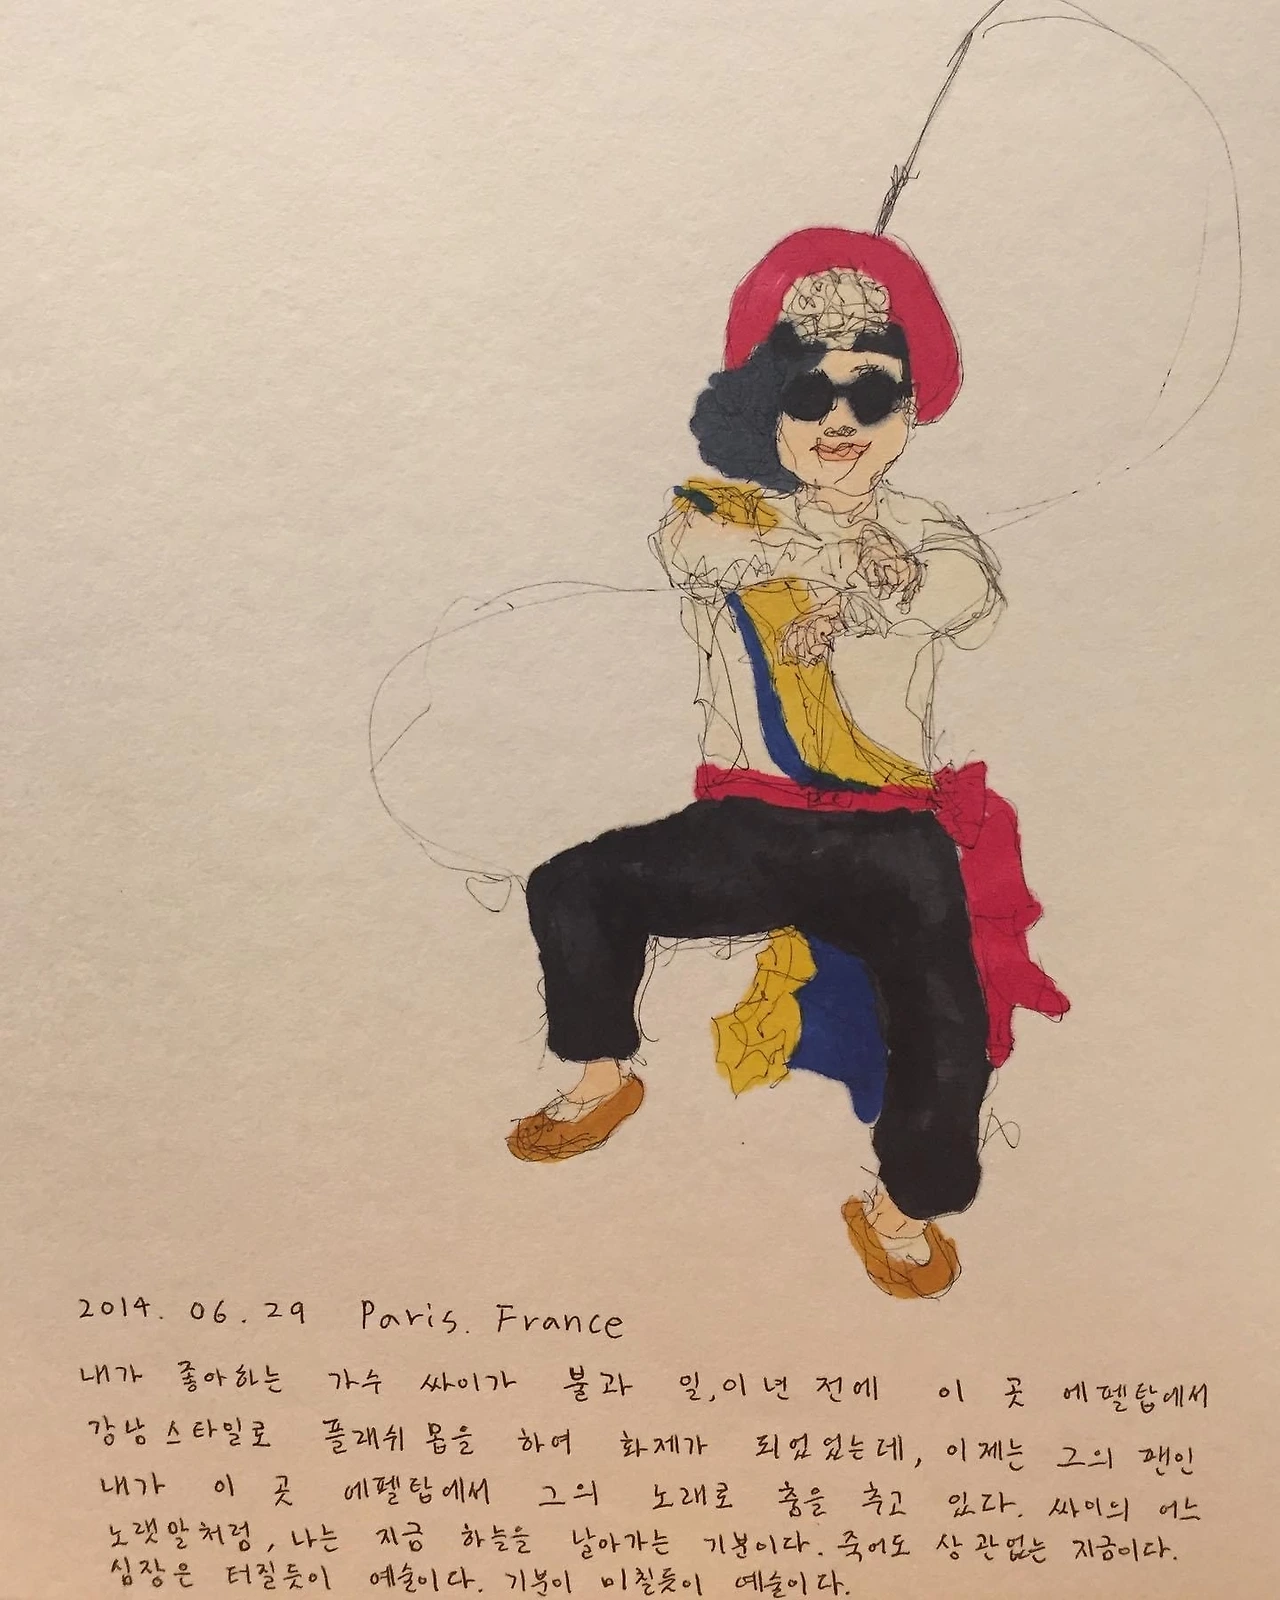 2014. 06. 29 Paris. France
내가 좋아하는 가수 싸이가 불과 일,이년 전에 이 곳 에펠탑에서
강남스타일로 플래쉬 몹을 하여 화제가 되었었는데, 이제는 그의 팬인
내가 이 곳 에펠탑에서 그의 노래로 춤을 추고 있다. 싸이의 어느
노랫말처럼, 나는 지금 하늘을 날아가는 기분이다. 죽어도 상관없는 지금이다.
심장은 터질듯이 예술이다. 기분이 미칠듯이 예술이다.